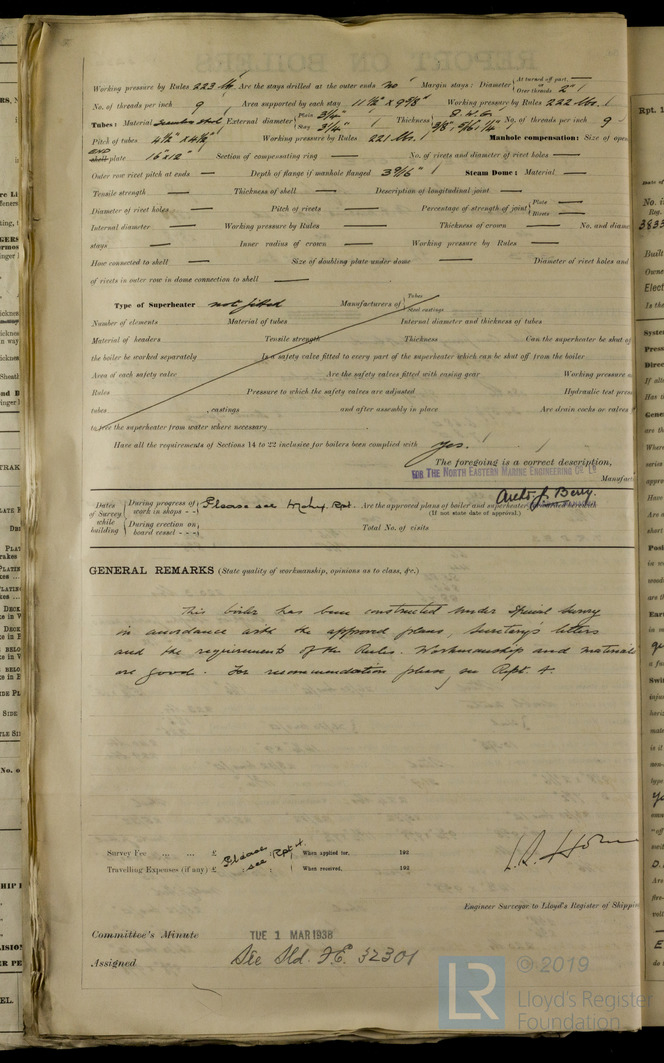 REPORT ON BOILERS
Working pressure by Rules 223 lb. Are the stays drilled at the outer ends no Margin stays: Diameter { At turned off part, — or Over threads 2"
No. of threads per inch 9 Area supported by each stay 11½" x 9⅝" Working pressure by Rules 222 lbs.
Tubes: Material Seamless steel External diameter { Plain 3¼" Stay 3¼" Thickness { 8 W.G. 3/8", 5/16", 1/4" No. of threads per inch 9
Pitch of tubes 4½" x 4½" Working pressure by Rules 221 lbs. Manhole compensation: Size of open
END shell plate 16" x 12" Section of compensating ring — No. of rivets and diameter of rivet holes —
Outer row rivet pitch at ends — Depth of flange if manhole flanged 3 9/16" Steam Dome: Material —
Tensile strength — Thickness of shell — Description of longitudinal joint —
Diameter of rivet holes — Pitch of rivets — Percentage of strength of joint { Plate — Rivets —
Internal diameter — Working pressure by Rules — Thickness of crown — No. and diame
stays — Inner radius of crown — Working pressure by Rules —
How connected to shell — Size of doubling plate under dome — Diameter of rivet holes and
of rivets in outer row in dome connection to shell —
Type of Superheater not fitted Manufacturers of { Tubes Steel castings
Number of elements Material of tubes Internal diameter and thickness of tubes
Material of headers Tensile strength Thickness Can the superheater be shut of
the boiler be worked separately Is a safety valve fitted to every part of the superheater which can be shut off from the boiler
Area of each safety valve Are the safety valves fitted with easing gear Working pressure a
Rules Pressure to which the safety valves are adjusted Hydraulic test pres
tubes , castings and after assembly in place Are drain cocks or valves f
to free the superheater from water where necessary
Have all the requirements of Sections 14 to 22 inclusive for boilers been complied with yes.
The foregoing is a correct description,
FOR THE NORTH EASTERN MARINE ENGINEERING Co. Ld.
Manufact
Archd J. Berry.
Dates of Survey while building { During progress of work in shops - - } Please see Mchy. Rpt. Are the approved plans of boiler and superheater forwarded herewith
(If not state date of approval.)
{ During erection on board vessel - - - } Total No. of visits
GENERAL REMARKS (State quality of workmanship, opinions as to class, &c.)
This boiler has been constructed under Special Survey
in accordance with the approved plans, Secretary's letters
and the requirements of the Rules. Workmanship and materials
are good. For recommendation please see Rpt. 4.
Survey Fee ... ... £ Please see Rpt 4. When applied for, 192
Travelling Expenses (if any) £ When received, 192
Engineer Surveyor to Lloyd's Register of Shippin
Committee's Minute TUE 1 MAR 1938
Assigned See Sld. F.E. 32301
LR © 2019
Lloyd's Register
Foundation